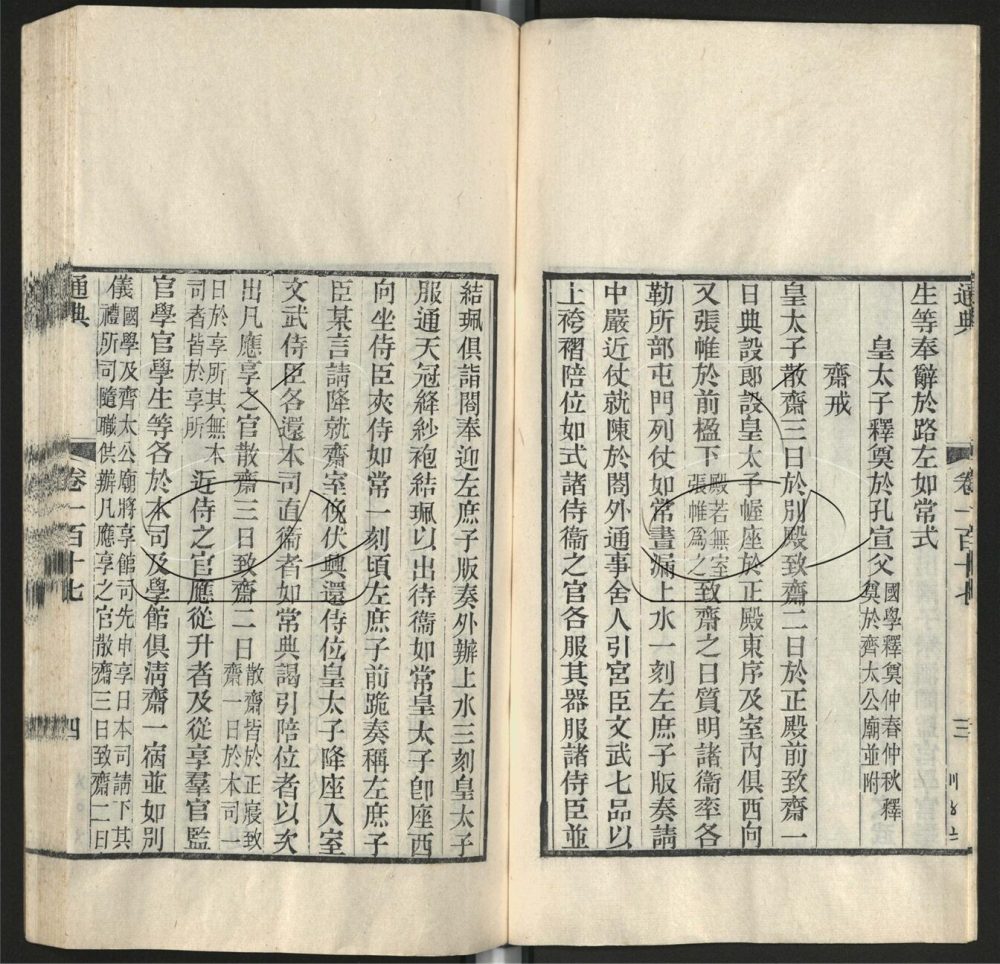 通典
卷一百十七
三
生等奉辭於路左如常式
皇太子釋奠於孔宣父國學釋奠仲春仲秋釋奠於齊太公廟並附
齋戒
皇太子散齋三日於別殿致齋二日於正殿前致齋一
日典設郎設皇太子幄座於正殿東序及室內俱西向
又張帷於前楹下殿若無室張帷爲之致齋之日質明諸衞率各
勒所部屯門列仗如常晝漏上水一刻左庶子版奏請
中嚴近仗就陳於閤外通事舍人引宮臣文武七品以
上袴褶陪位如式諸侍衞之官各服其器服諸侍臣並
結珮俱詣閤奉迎左庶子版奏外辦上水三刻皇太子
服通天冠絳紗袍結珮以出待衞如常皇太子卽座西
向坐侍臣夾侍如常一刻頃左庶子前跪奏稱左庶子
臣某言請降就齋室俛伏興還侍位皇太子降座入室
文武侍臣各還本司直衞者如常典謁引陪位者以次
出凡應享之官散齋三日致齋二日散齋皆於正寢致齋一日於本司一
日於享所其無本司者皆於享所近侍之官應從升者及從享羣官監
官學官學生等各於本司及學館俱淸齋一宿並如別
儀國學及齊太公廟將享館司先申享日本司請下其禮所司隨職供辦凡應享之官散齋三日致齋二日
通典
卷一百十七
四